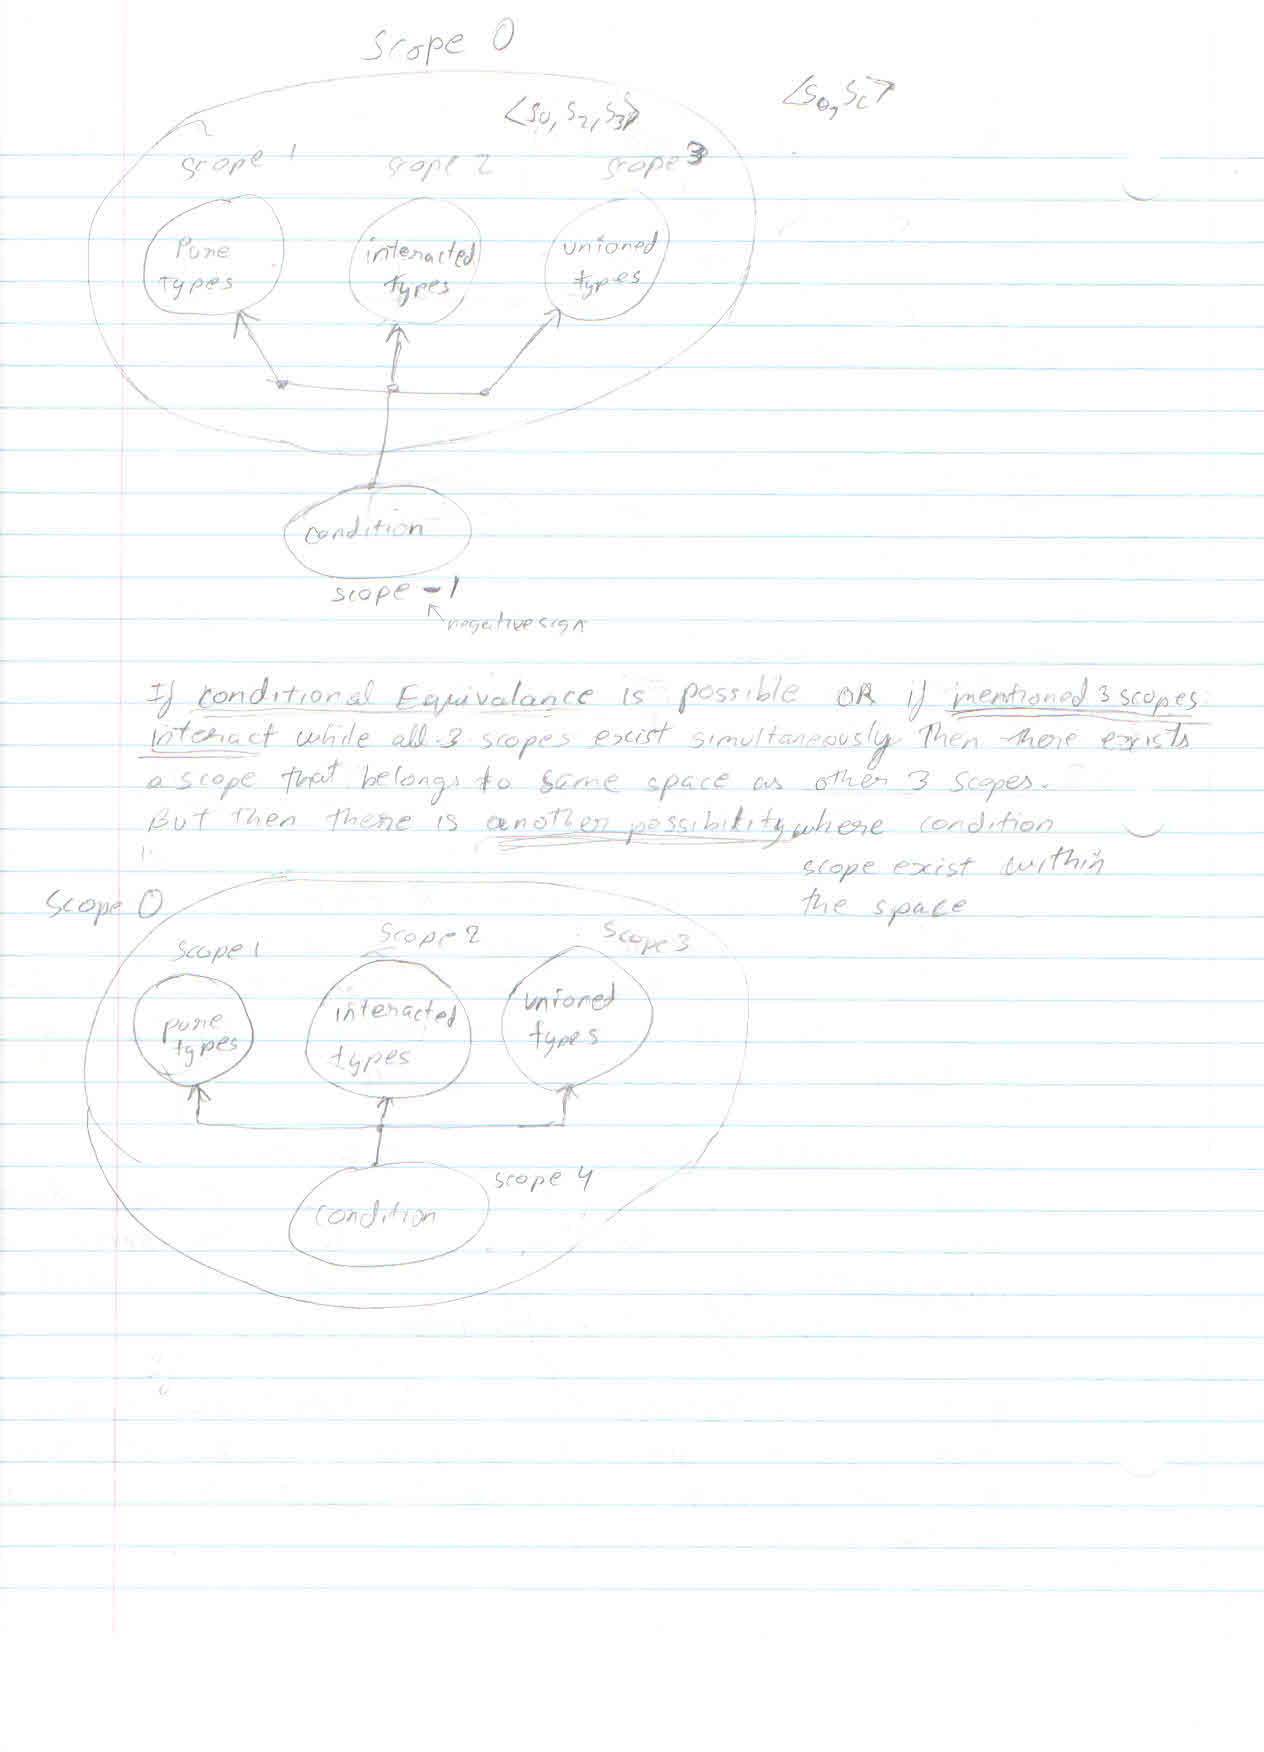 Scope 0
<S0, Sc>
<S0, S2, S3>
scope 1 scope 2 scope 3
Pure types
interacted types
unioned types
condition
scope -1
negative sign
If conditional Equivalance is possible OR if mentioned 3 scopes
interact while all 3 scopes excist simultaneously Then there exists
a scope that belongs to same space as other 3 scopes.
But then there is another possibility where condition
scope exist within
the space
Scope 0
Scope 1
Scope 2
Scope 3
pure types
interacted types
unioned types
scope 4
condition